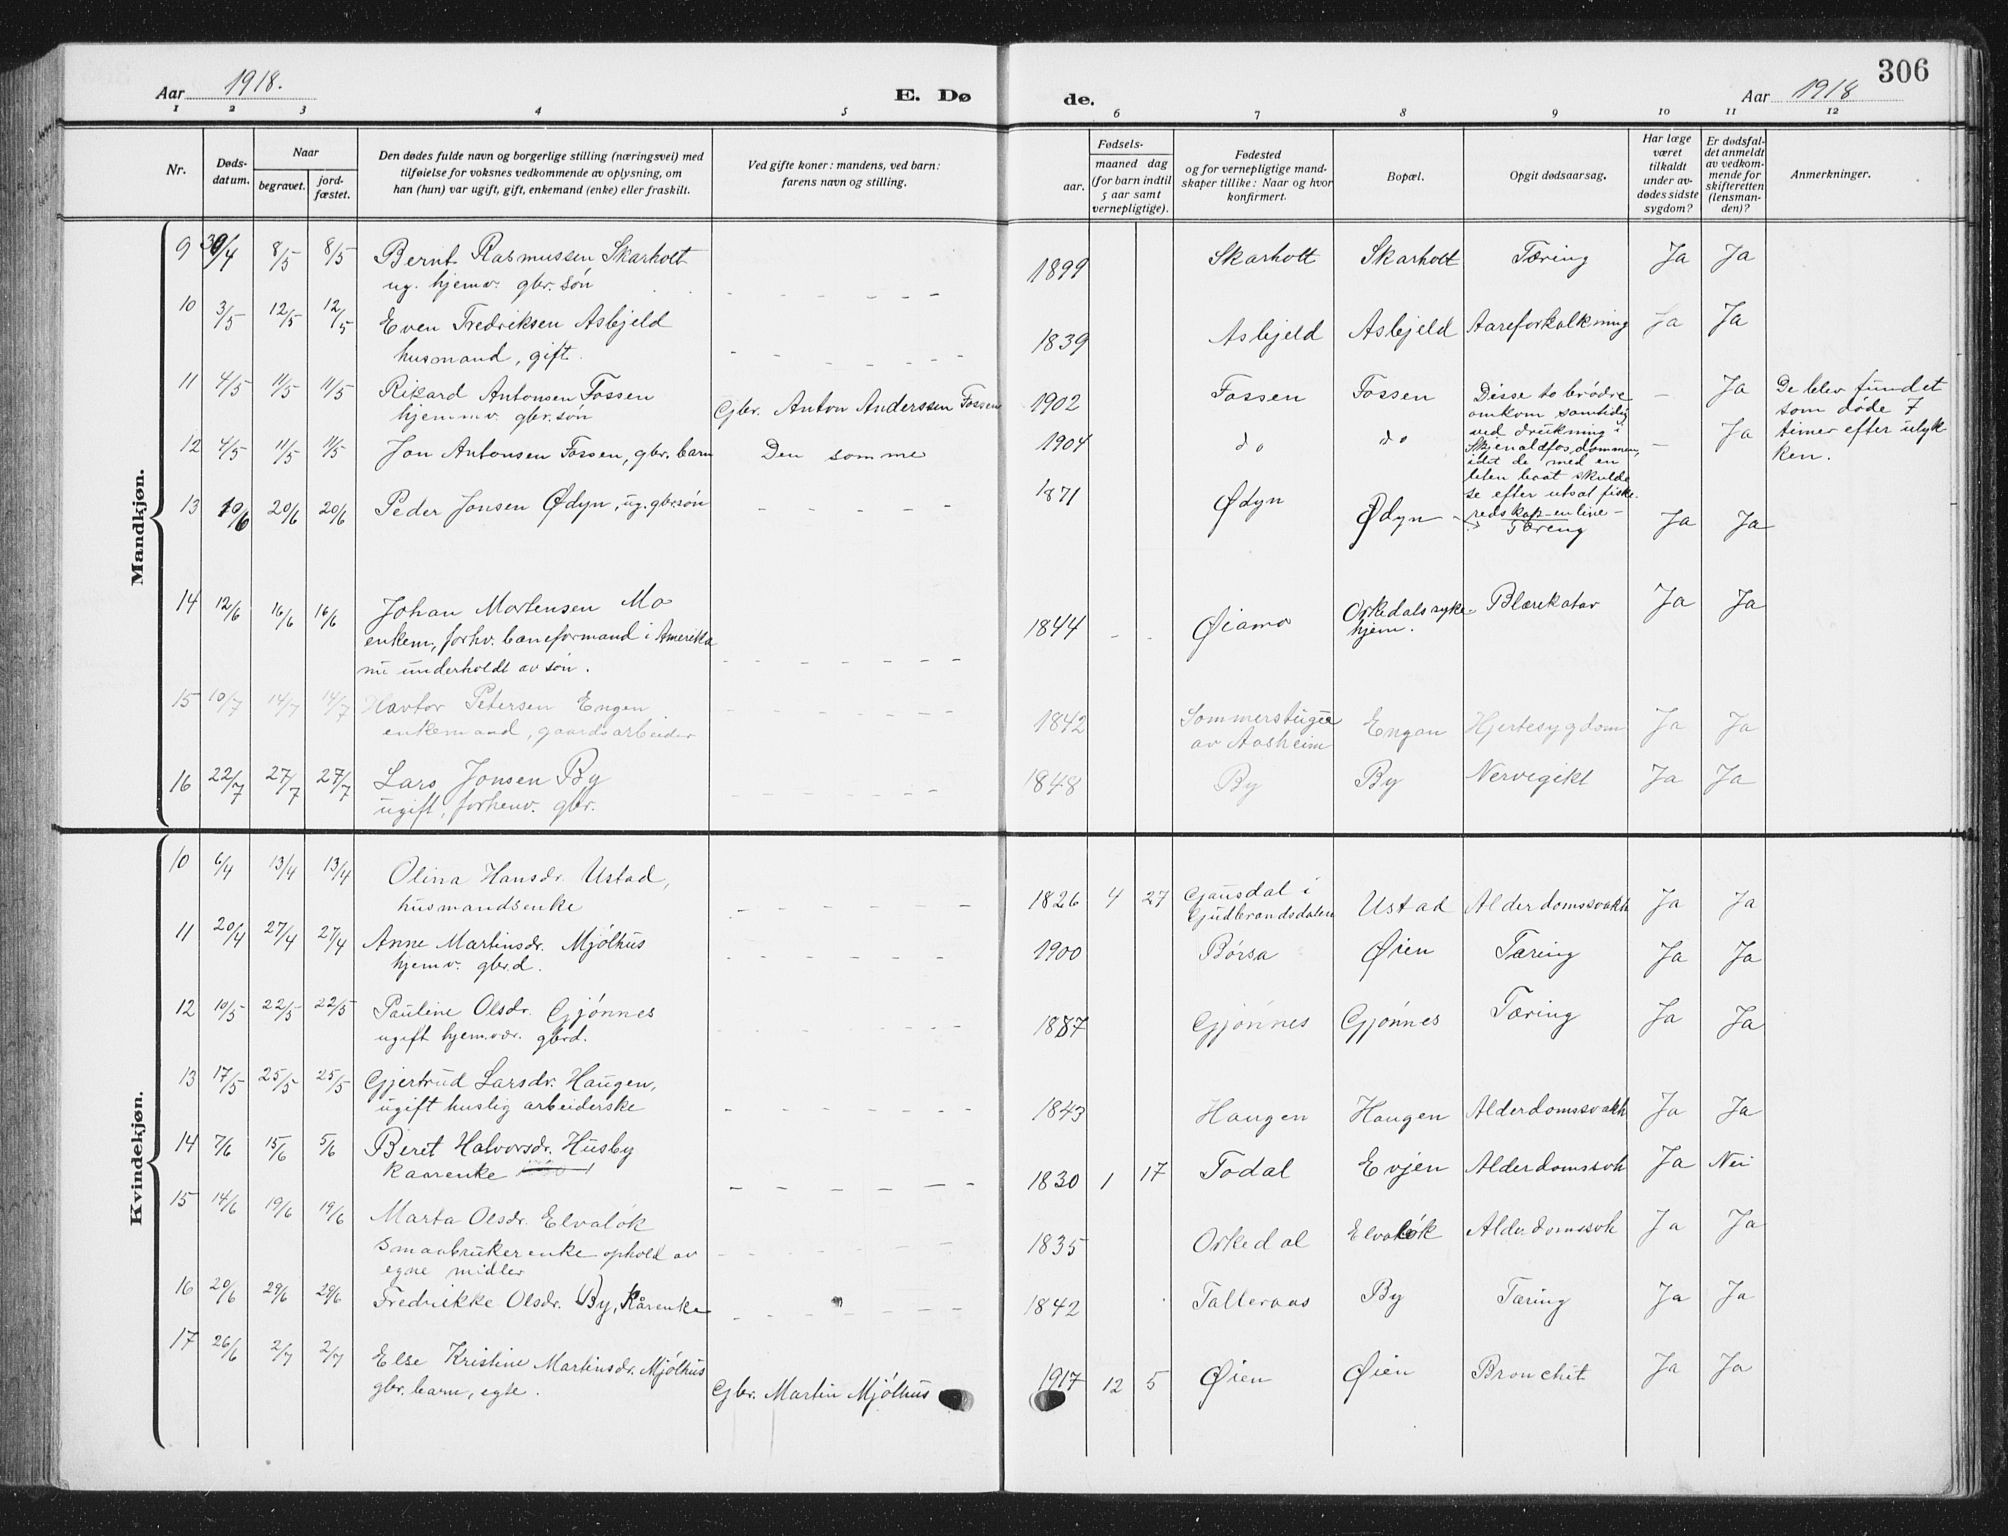 306
Aar 1918. E. Dø de. Aar 1918
1 2 3 4 5 6 7 8 9 10 11 12
Nr. Døds-datum. Naar begravet. jord-fæstet. Den dødes fulde navn og borgerlige stilling (næringsvei) med tilføielse for voksnes vedkommende av oplysning, om han (hun) var ugift, gift, enkemand (enke) eller fraskilt. Ved gifte koner: mandens, ved barn: farens navn og stilling. Fødsels- aar. maaned dag (for barn indtil 5 aar samt vernepligtige). Fødested og for vernepligtige mand-skaper tillike: Naar og hvor konfirmert. Bopæl. Opgit dødsaarsag. Har læge været tilkaldt under av-dødes sidste sygdom? Er dødsfal-det anmeldt av vedkom-mende for skifteretten (lensman-den)? Anmerkninger.
Mandkjøn.
9 30/4 8/5 8/5 Bernt Rasmussen Skarholt 1899 Skarholt Skarholt Tæring Ja Ja
ug. hjemv. gbr. søn
10 3/5 12/5 12/5 Even Fredriksen Asbjeld 1839 Asbjeld Asbjeld Aareforkalkning Ja Ja
husmand, gift.
11 4/5 11/5 11/5 Rikard Antonsen Fossen Gbr. Anton Anderssen Fossen 1902 Fossen Fossen Disse to brødre - Ja De blev fundet
hjemmv. gbr. søn omkom samtidig som døde 7
12 4/5 11/5 11/5 Jon Antonsen Fossen, gbr. barn Den samme 1904 do do ved drukning i - Ja timer efter ulyk
Skjenaldfosdammen, ken.
idet de med en
liten baat skulde
se efter utsat fiske.
redskap - en line -
13 10/6 20/6 20/6 Peder Jonsen Ødyn, ug. gbr. søn 1871 Ødyn Ødyn Tæring Ja Ja
14 12/6 16/6 16/6 Johan Mortensen Mo 1844 Øiamo Orkedals syke Blærekatar Ja Ja
enkem., forhv. baneformand i Amerika hjem.
nu underholdt av søn.
15 10/7 14/7 14/7 Havtor Petersen Engen 1842 Sommerstugu Engan Hjertesygdom Ja Ja
enkemand, gaardsarbeider av Aasheim
16 22/7 27/7 27/7 Lars Jonsen By 1848 By By Nervegikt Ja Ja
ugift, forhenv. gbr.
Kvindekjøn.
10 6/4 13/4 13/4 Olina Hansdr. Ustad, 1826 4 27 Gausdal i Ustad Alderdomssvakh Ja Ja
husmandsenke Gudbrandsdalen
11 20/4 27/4 27/4 Anne Martinsdr. Mjølhus 1900 Børsa Øien Tæring Ja Ja
hjemv. gbr.d.
12 10/5 22/5 22/5 Pauline Olsdr. Gjønnes 1887 Gjønnes Gjønnes Tæring Ja Ja
ugift hjem.vær. gbrd.
13 17/5 25/5 25/5 Gjertrud Larsdr. Haugen, 1843 Haugen Haugen Alderdomssvakh Ja Ja
ugift huslig arbeiderske
14 7/6 15/6 5/6 Beret Halvorsdr. Husby 1830 1 17 Todal Evjen Alderdomssvh Ja Nei
Kaarenke
15 14/6 19/6 19/6 Marta Olsdr. Elvaløk 1835 Orkedal Elvaløk Alderdomssvh Ja Ja
Smaabrukerenke ophold av
egne midler
16 20/6 29/6 29/6 Fredrikke Olsdr. By, Kårenke 1842 Talleraas By Tæring Ja Ja
17 26/6 2/7 2/7 Else Kristine Martinsdr. Mjølhus Gbr. Martin Mjølhus 1917 12 5 Øien Øien Bronchit Ja Ja
gbr. barn, egte.